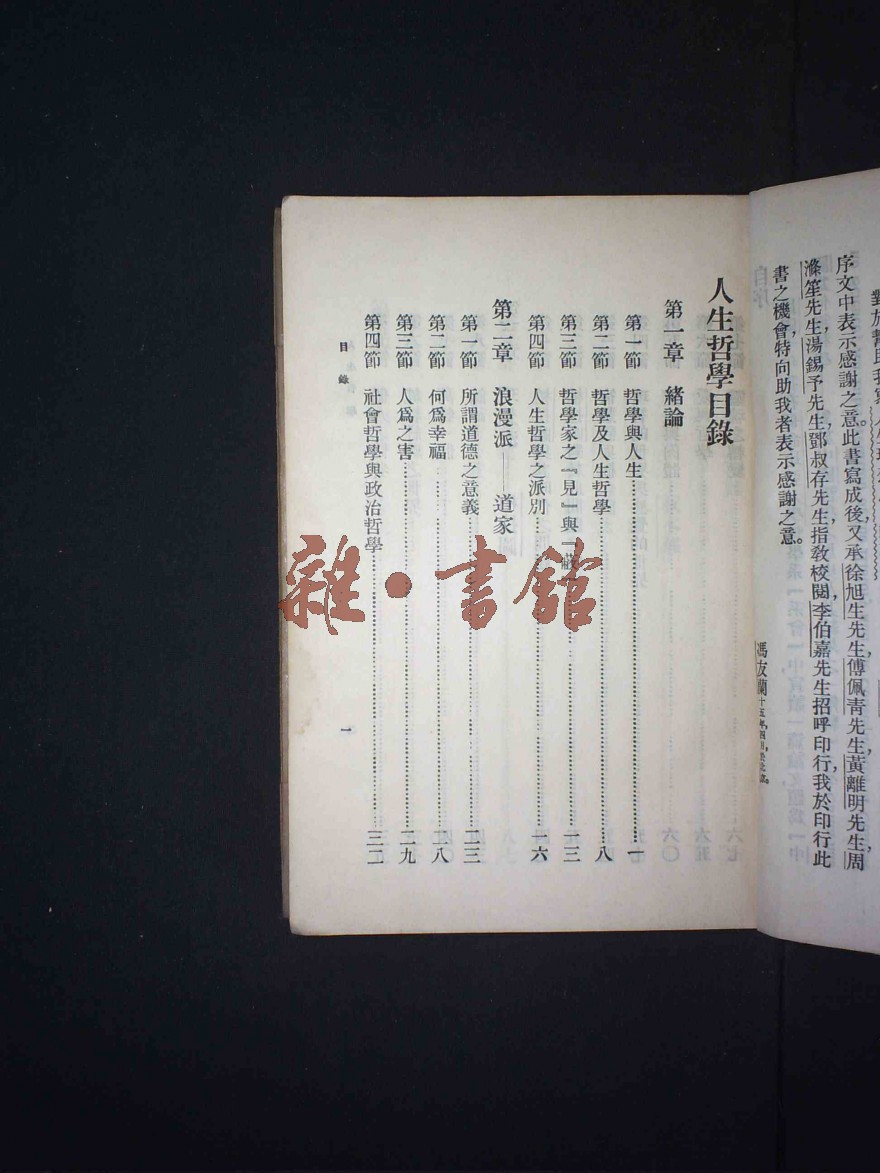 序文中表示感謝之意。此書寫成後,又承徐旭生先生,傅佩青先生,黃離明先生,周
滌笙先生,湯錫予先生,鄧叔存先生,指敎校閱,李伯嘉先生招呼印行,我於印行此
書之機會特向助我者表示感謝之意。
馮友蘭
人生哲學目錄
第一章 緒論
第一節 哲學與人生 一
第二節 哲學及人生哲學 八
第三節 哲學家之『見』與『蔽 一三
第四節 人生哲學之派別 一六
第二章 浪漫派——道家
第一節 所謂道德之意義 二三
第二節 何爲幸福 二八
第三節 人爲之害 二九
第四節 社會哲學與政治哲學 三二
目錄
一
雜·書館